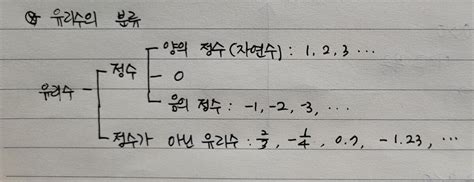 유리수의 분류
양의 정수 (자연수) : 1, 2, 3 ...
정수 0
유리수 음의 정수 : -1, -2, -3, ...
정수가 아닌 유리수 : 2/3, -1/4, -1.23, ...